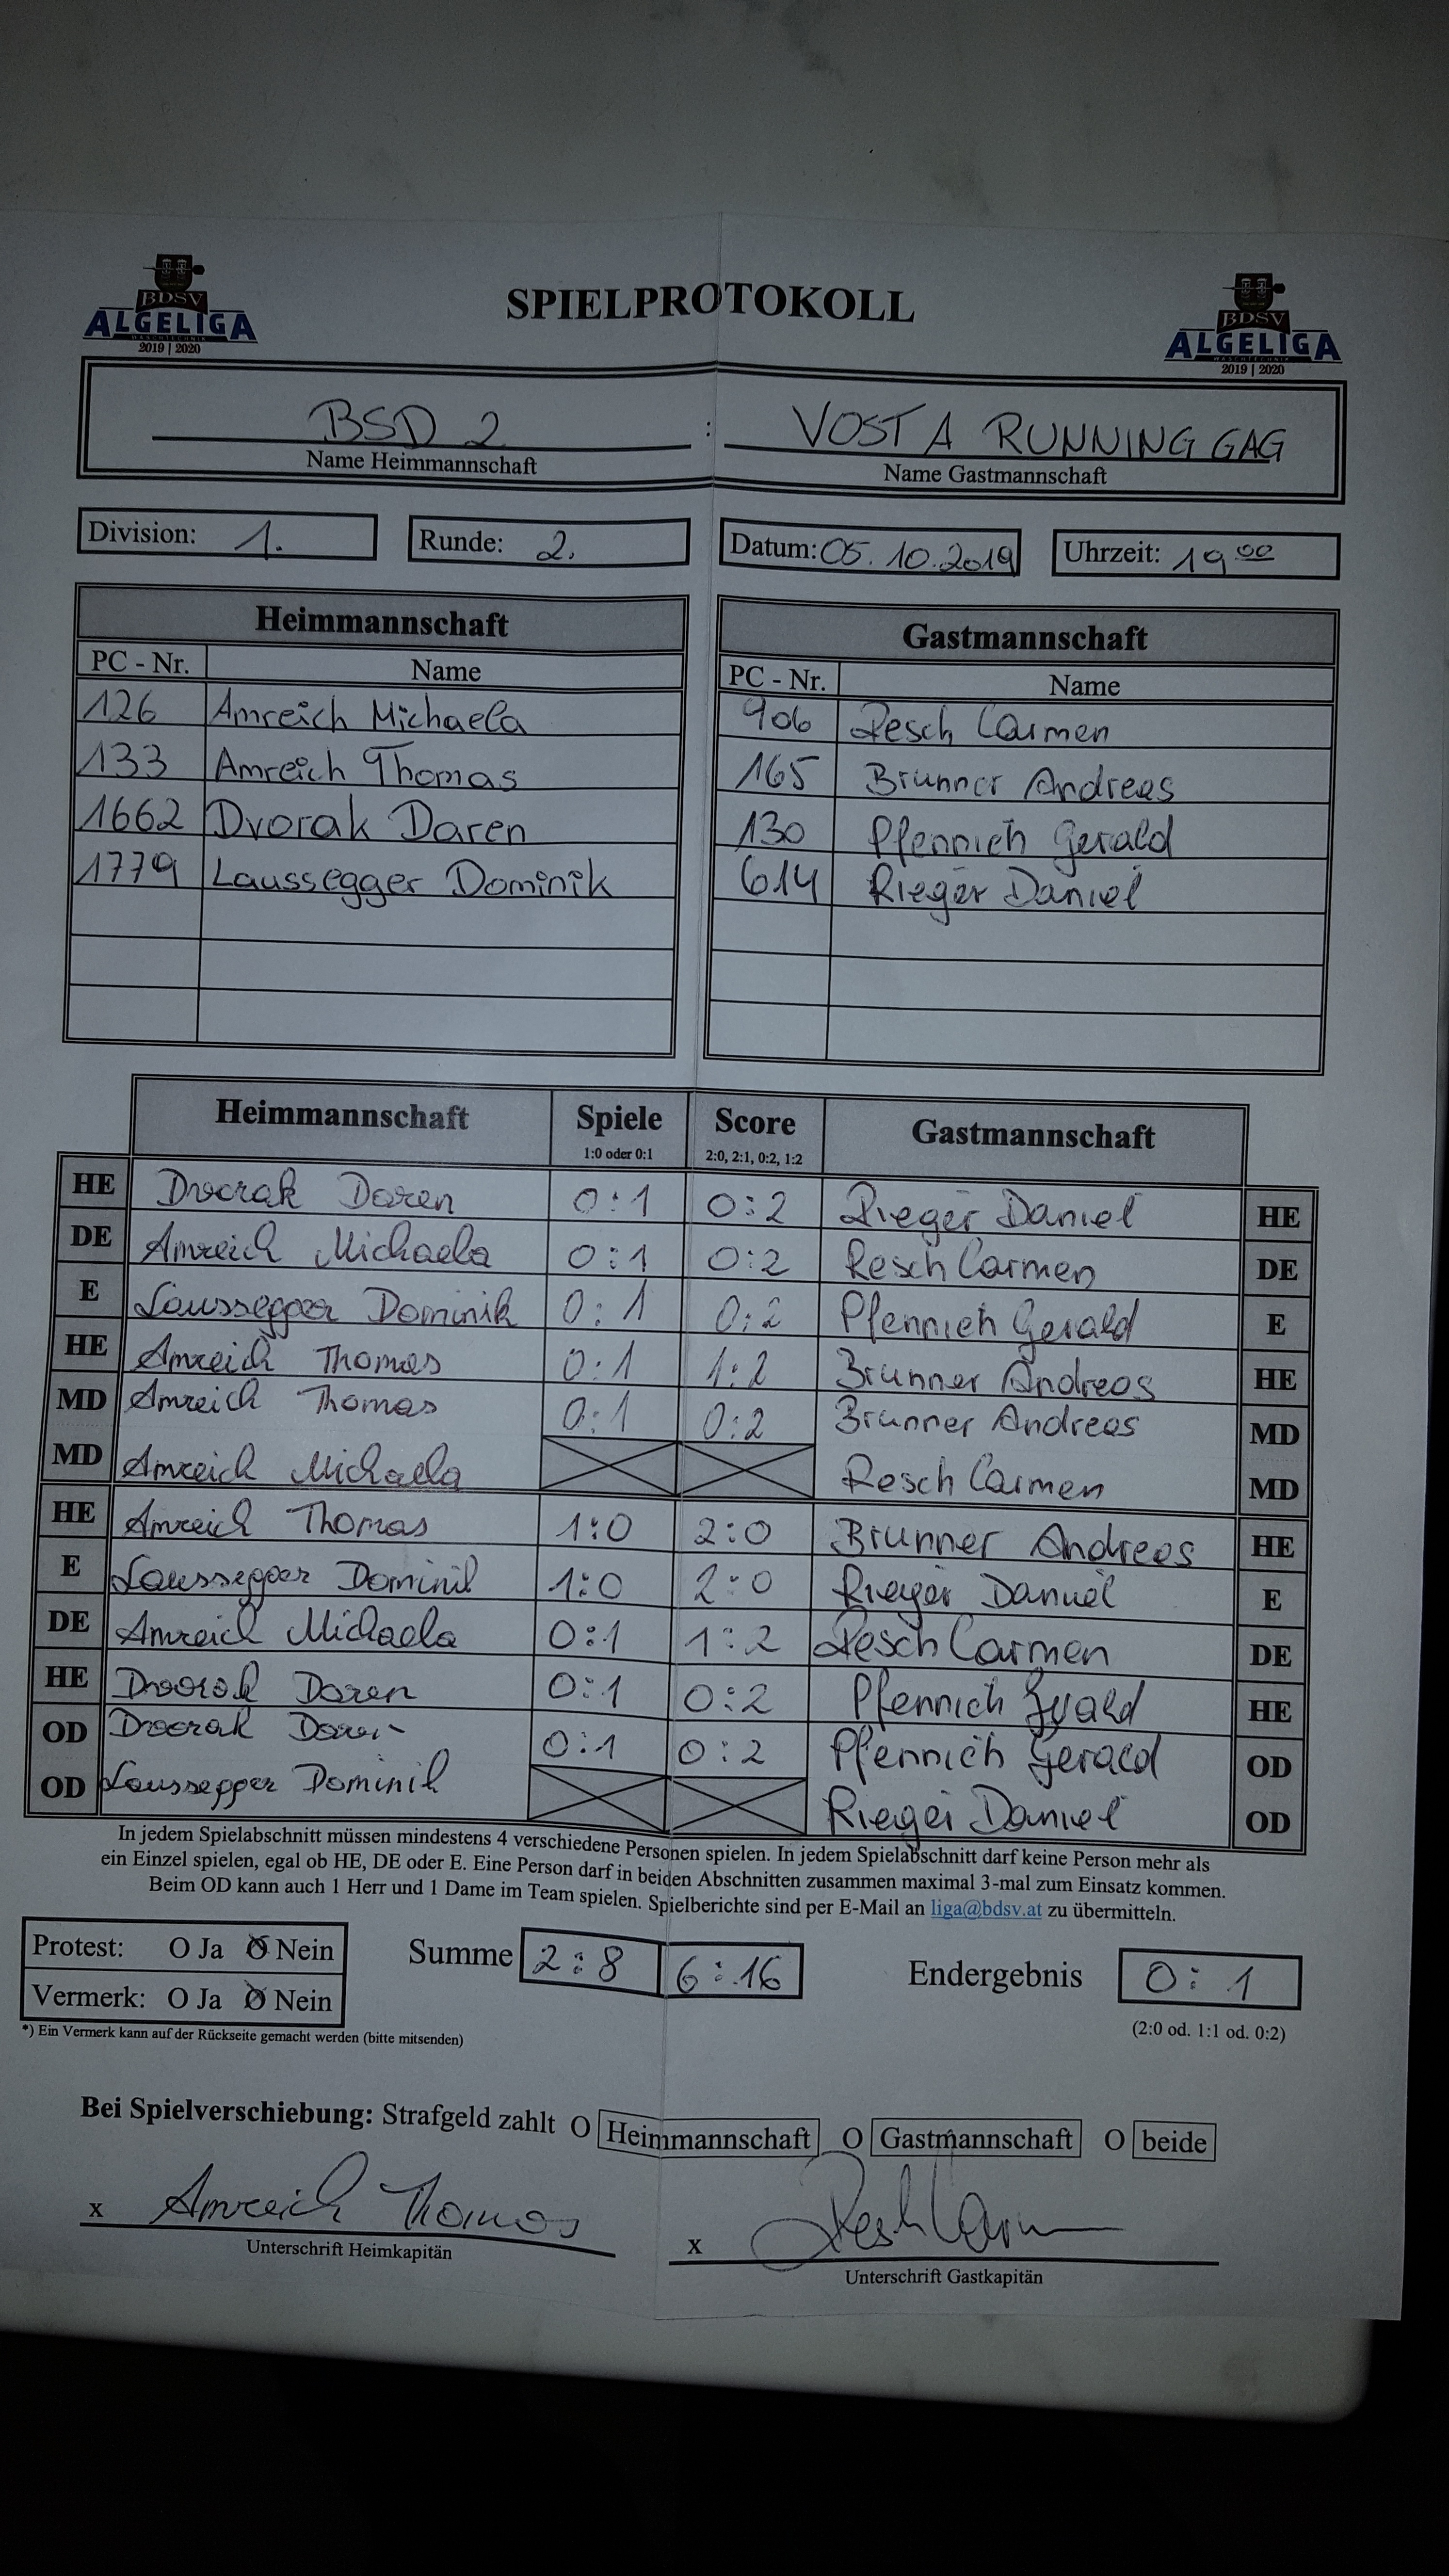 BDSV
ALGELIGA
WASCHTECHNIK
2019 | 2020
SPIELPROTOKOLL
BDSV
ALGELIGA
WASCHTECHNIK
2019 | 2020
BSD 2 : VOST A RUNNING GAG
Name Heimmannschaft Name Gastmannschaft
Division: 1. Runde: 2. Datum: 05.10.2019 Uhrzeit: 19 00
Heimmannschaft
PC - Nr. Name
126 Amreich Michaela
133 Amreich Thomas
1662 Dvorak Daren
1779 Laussegger Dominik
Gastmannschaft
PC - Nr. Name
906 Resch Carmen
165 Brunner Andreas
130 Pfennich Gerald
614 Rieger Daniel
Heimmannschaft Spiele Score Gastmannschaft
1:0 oder 0:1 2:0, 2:1, 0:2, 1:2
HE Dvorak Daren 0:1 0:2 Rieger Daniel HE
DE Amreich Michaela 0:1 0:2 Resch Carmen DE
E Laussegger Dominik 0:1 0:2 Pfennich Gerald E
HE Amreich Thomas 0:1 1:2 Brunner Andreas HE
MD Amreich Thomas 0:1 0:2 Brunner Andreas MD
MD Amreich Michaela Resch Carmen MD
HE Amreich Thomas 1:0 2:0 Brunner Andreas HE
E Laussegger Dominik 1:0 2:0 Rieger Daniel E
DE Amreich Michaela 0:1 1:2 Resch Carmen DE
HE Dvorak Daren 0:1 0:2 Pfennich Gerald HE
OD Dvorak Daren 0:1 0:2 Pfennich Gerald OD
OD Laussegger Dominik Rieger Daniel OD
In jedem Spielabschnitt müssen mindestens 4 verschiedene Personen spielen. In jedem Spielabschnitt darf keine Person mehr als
ein Einzel spielen, egal ob HE, DE oder E. Eine Person darf in beiden Abschnitten zusammen maximal 3-mal zum Einsatz kommen.
Beim OD kann auch 1 Herr und 1 Dame im Team spielen. Spielberichte sind per E-Mail an liga@bdsv.at zu übermitteln.
Protest: O Ja O Nein Summe 2:8 6:16 Endergebnis 0:1
Vermerk: O Ja O Nein
*) Ein Vermerk kann auf der Rückseite gemacht werden (bitte mitsenden) (2:0 od. 1:1 od. 0:2)
Bei Spielverschiebung: Strafgeld zahlt O Heimmannschaft O Gastmannschaft O beide
x Amreich Thomas x Resch Carmen
Unterschrift Heimkapitän Unterschrift Gastkapitän